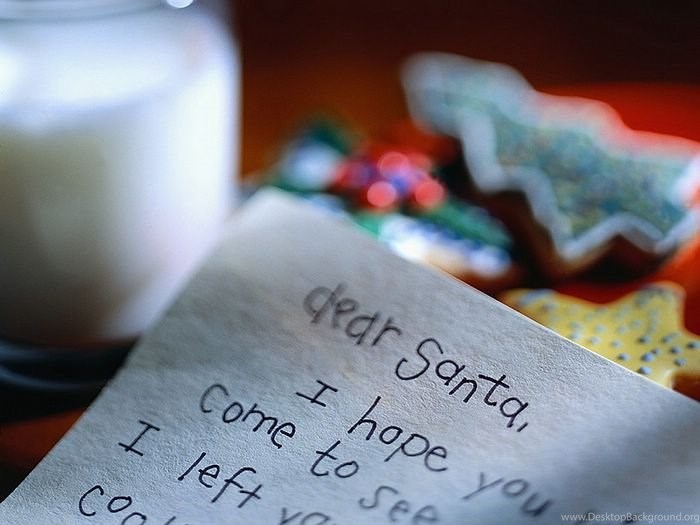 dear Santa,
I hope you
come to see
I left
www.DesktopBackground.org